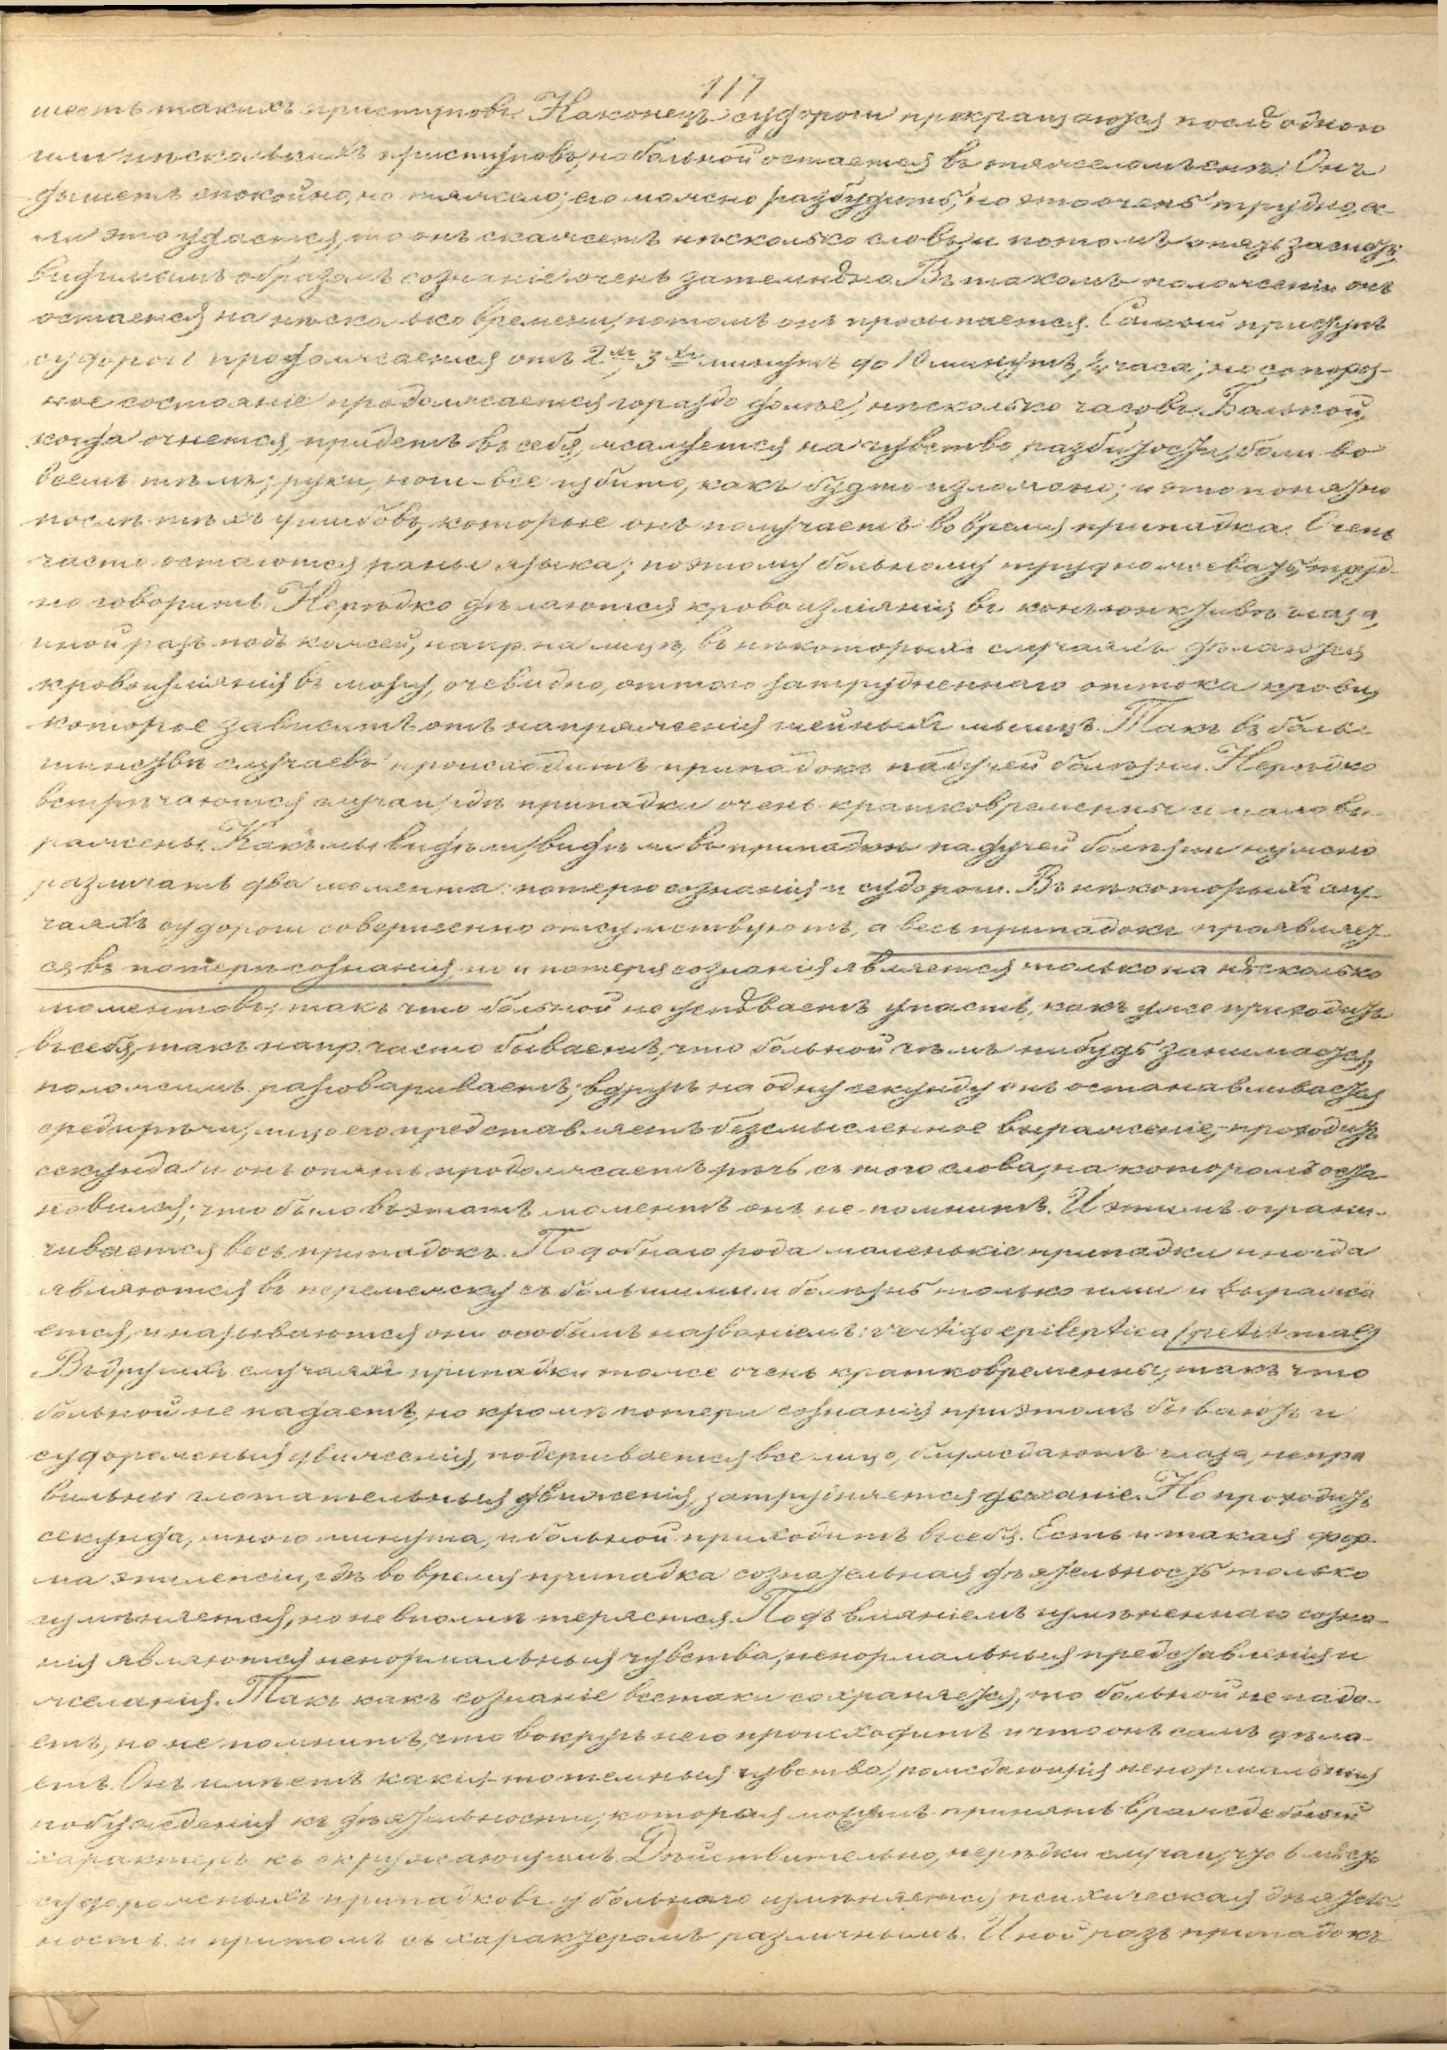 117
шесть такихъ приступовъ. Наконецъ судороги прекращаются послѣ одного
или нѣсколькихъ приступовъ, но больной остается въ тяжеломъ снѣ. Онъ
дышетъ спокойно, но тяжело; его можно разбудить, но это очень трудно, е-
ли это удастся, то онъ скажетъ нѣсколько словъ и потомъ опять заснетъ,
видимымъ образомъ сознаніе очень затемнѣно. Въ такомъ положеніи онъ
остается на нѣсколько времени, потомъ онъ просыпается. Самый приступъ
судорогъ продолжается отъ 2хъ, 3хъ минутъ до 10 минутъ, ¼ часа; но сопороз-
ное состояніе продолжается гораздо долѣе, нѣсколько часовъ. Больной,
когда очнется, придетъ въ себя, жалуется на чувство разбитости, боли во
всемъ тѣлѣ; руки, ноги - все избито, какъ будто изломано; и это понятно
послѣ тѣхъ ушибовъ, которые онъ получаетъ во время припадка. Очень
часто остаются раны языка; поэтому больному трудно жевать, труд-
но говорить. Нерѣдко дѣлаются кровоизліянія въ конъюнктивѣ глаза,
иной разъ подъ кожей, напр. на лицѣ, въ некоторыхъ случаяхъ дѣлаются
кровоизліянія въ мозгу, очевидно, отъ того затрудненнаго оттока крови,
которое зависитъ отъ напряженія шейныхъ мышцъ. Такъ въ боль-
шинствѣ случаевъ происходитъ припадокъ падучей болѣзни. Нерѣдко
встрѣчаются случаи, гдѣ припадки очень кратковременны и мало вы-
ражены. Какъ мы видѣли, въ припадкѣ падучей болѣзни нужно
различать два момента: потерю сознанія и судороги. Въ нѣкоторыхъ слу-
чаяхъ судороги совершенно отсутствуютъ, а весь припадокъ проявляет-
ся въ потерѣ сознанія, но и потеря сознанія является только на нѣсколько
моментовъ, такъ что больной не успѣваетъ упасть, какъ уже приходитъ
въ себя, такъ напр. часто бываетъ, что больной чѣмъ нибудь занимается,
положимъ, разговариваетъ; вдругъ на одну секунду онъ останавливается
среди рѣчи, лицо его представляетъ безсмысленное выраженіе, проходитъ
секунда и онъ опять продолжаетъ рѣчь съ того слова, на которомъ оста-
новился; что было въ этотъ моментъ онъ не помнитъ. И этимъ ограни-
чивается весь припадокъ. Подобнаго рода маленькіе припадки иногда
являются въ перемежку съ большими и болѣзнь только ими и выража
ется, и называются они особымъ названіемъ: vertigo epileptica (petit mal)
Въ другихъ случаяхъ припадки тоже очень кратковременны, такъ что
больной не падаетъ, но кромѣ потери сознанія при этомъ бываютъ и
судорожныя движенія, подергивается все лицо, блуждаютъ глаза, непра
вильны глотательныя движенія, затрудняется дыханіе. Но проходитъ
секунда, много минута, и больной приходитъ въ себя. Есть и такая фор-
ма эпилепсіи, гдѣ во время припадка сознательная дѣятельность только
измѣняется, но не вполнѣ теряется. Подъ вліяніемъ измѣненнаго созна-
нія являются ненормальныя чувства, ненормальныя представленія и
желанія. Такъ какъ сознаніе все таки сохраняется, то больной не пада-
етъ, но не помнитъ, что вокругъ него происходитъ и что онъ самъ дѣла-
етъ. Онъ имѣетъ какія-то темныя чувства, рождающія ненормальныя
побужденія къ дѣятельности, которыя могутъ принять враждебный
характеръ къ окружающимъ. Дѣйствительно, нерѣдки случаи, что вмѣсто
судорожныхъ припадковъ у больнаго измѣняется психическая дѣятель-
ность и притомъ съ характеромъ различнымъ. Иной разъ припадокъ